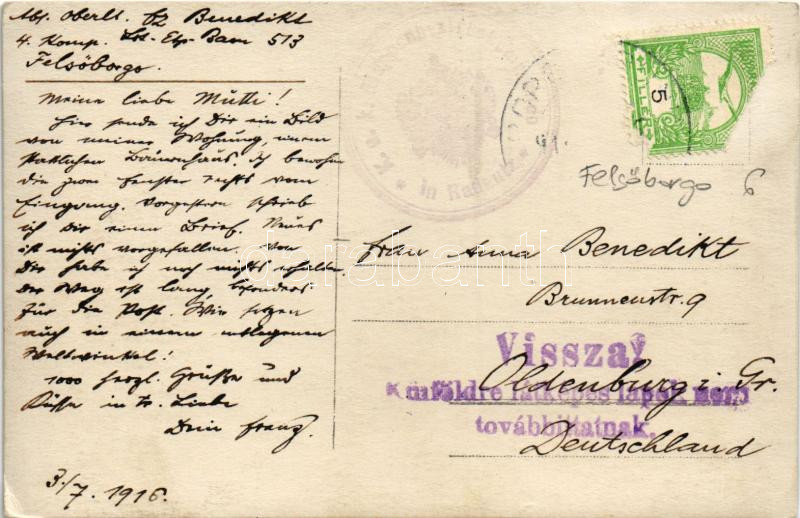 Abs. Oberlt. Benedikt
4. Komp. Bau 513
Felsöborgo.
Meine liebe Mutti!
Hier sende ich Dir ein Bild
von meiner Wohnung, einem
stattlichen Bauernhaus. Ich bewohne
die zwei Fenster rechts vom
Eingang. Vorgestern schrieb
ich Dir einen Brief. Neues
ist nichts vorgefallen. Von
Dir habe ich noch nichts erhalten.
Der Weg ist lang, besonders
für die Post. Wir sitzen
auch in einem entlegenen
Weltwinkel!
1000 herzl. Grüße und
Küsse in tr. Liebe
Dein Franz.
3./7. 1916.
5
FILLÉR
Felsöborgo 6
Frau Anna Benedikt
Brunnenstr. 9
Oldenburg i. Gr.
Deutschland
Vissza!
Külföldre látképes lapok nem
továbbíttatnak.
darabanth